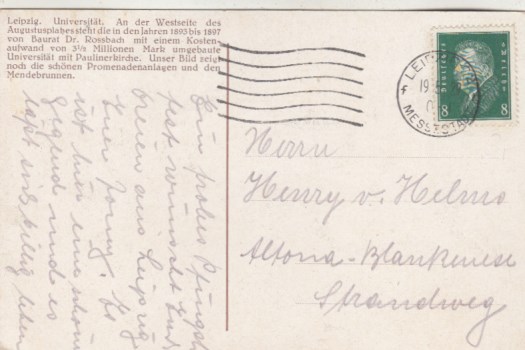 Leipzig. Universität. An der Westseite des
Augustusplatzes steht die in den Jahren 1893 bis 1897
von Baurat Dr. Rossbach mit einem Kosten-
aufwand von 3½ Millionen Mark umgebaute
Universität mit Paulinerkirche. Unser Bild zeigt
noch die schönen Promenadenanlagen und den
Mendebrunnen.
LEIPZIG
19
MESSESTADT
Deutsches Reich
8 8
Herrn
Henry v. Helms
Altona-Blankenese
Strandweg
Ein frohes Pfingst-
fest wünscht Euch
aus Leipzig
Euer Es
ist hier eine schöne
Gegend und es
läßt sich billig leben